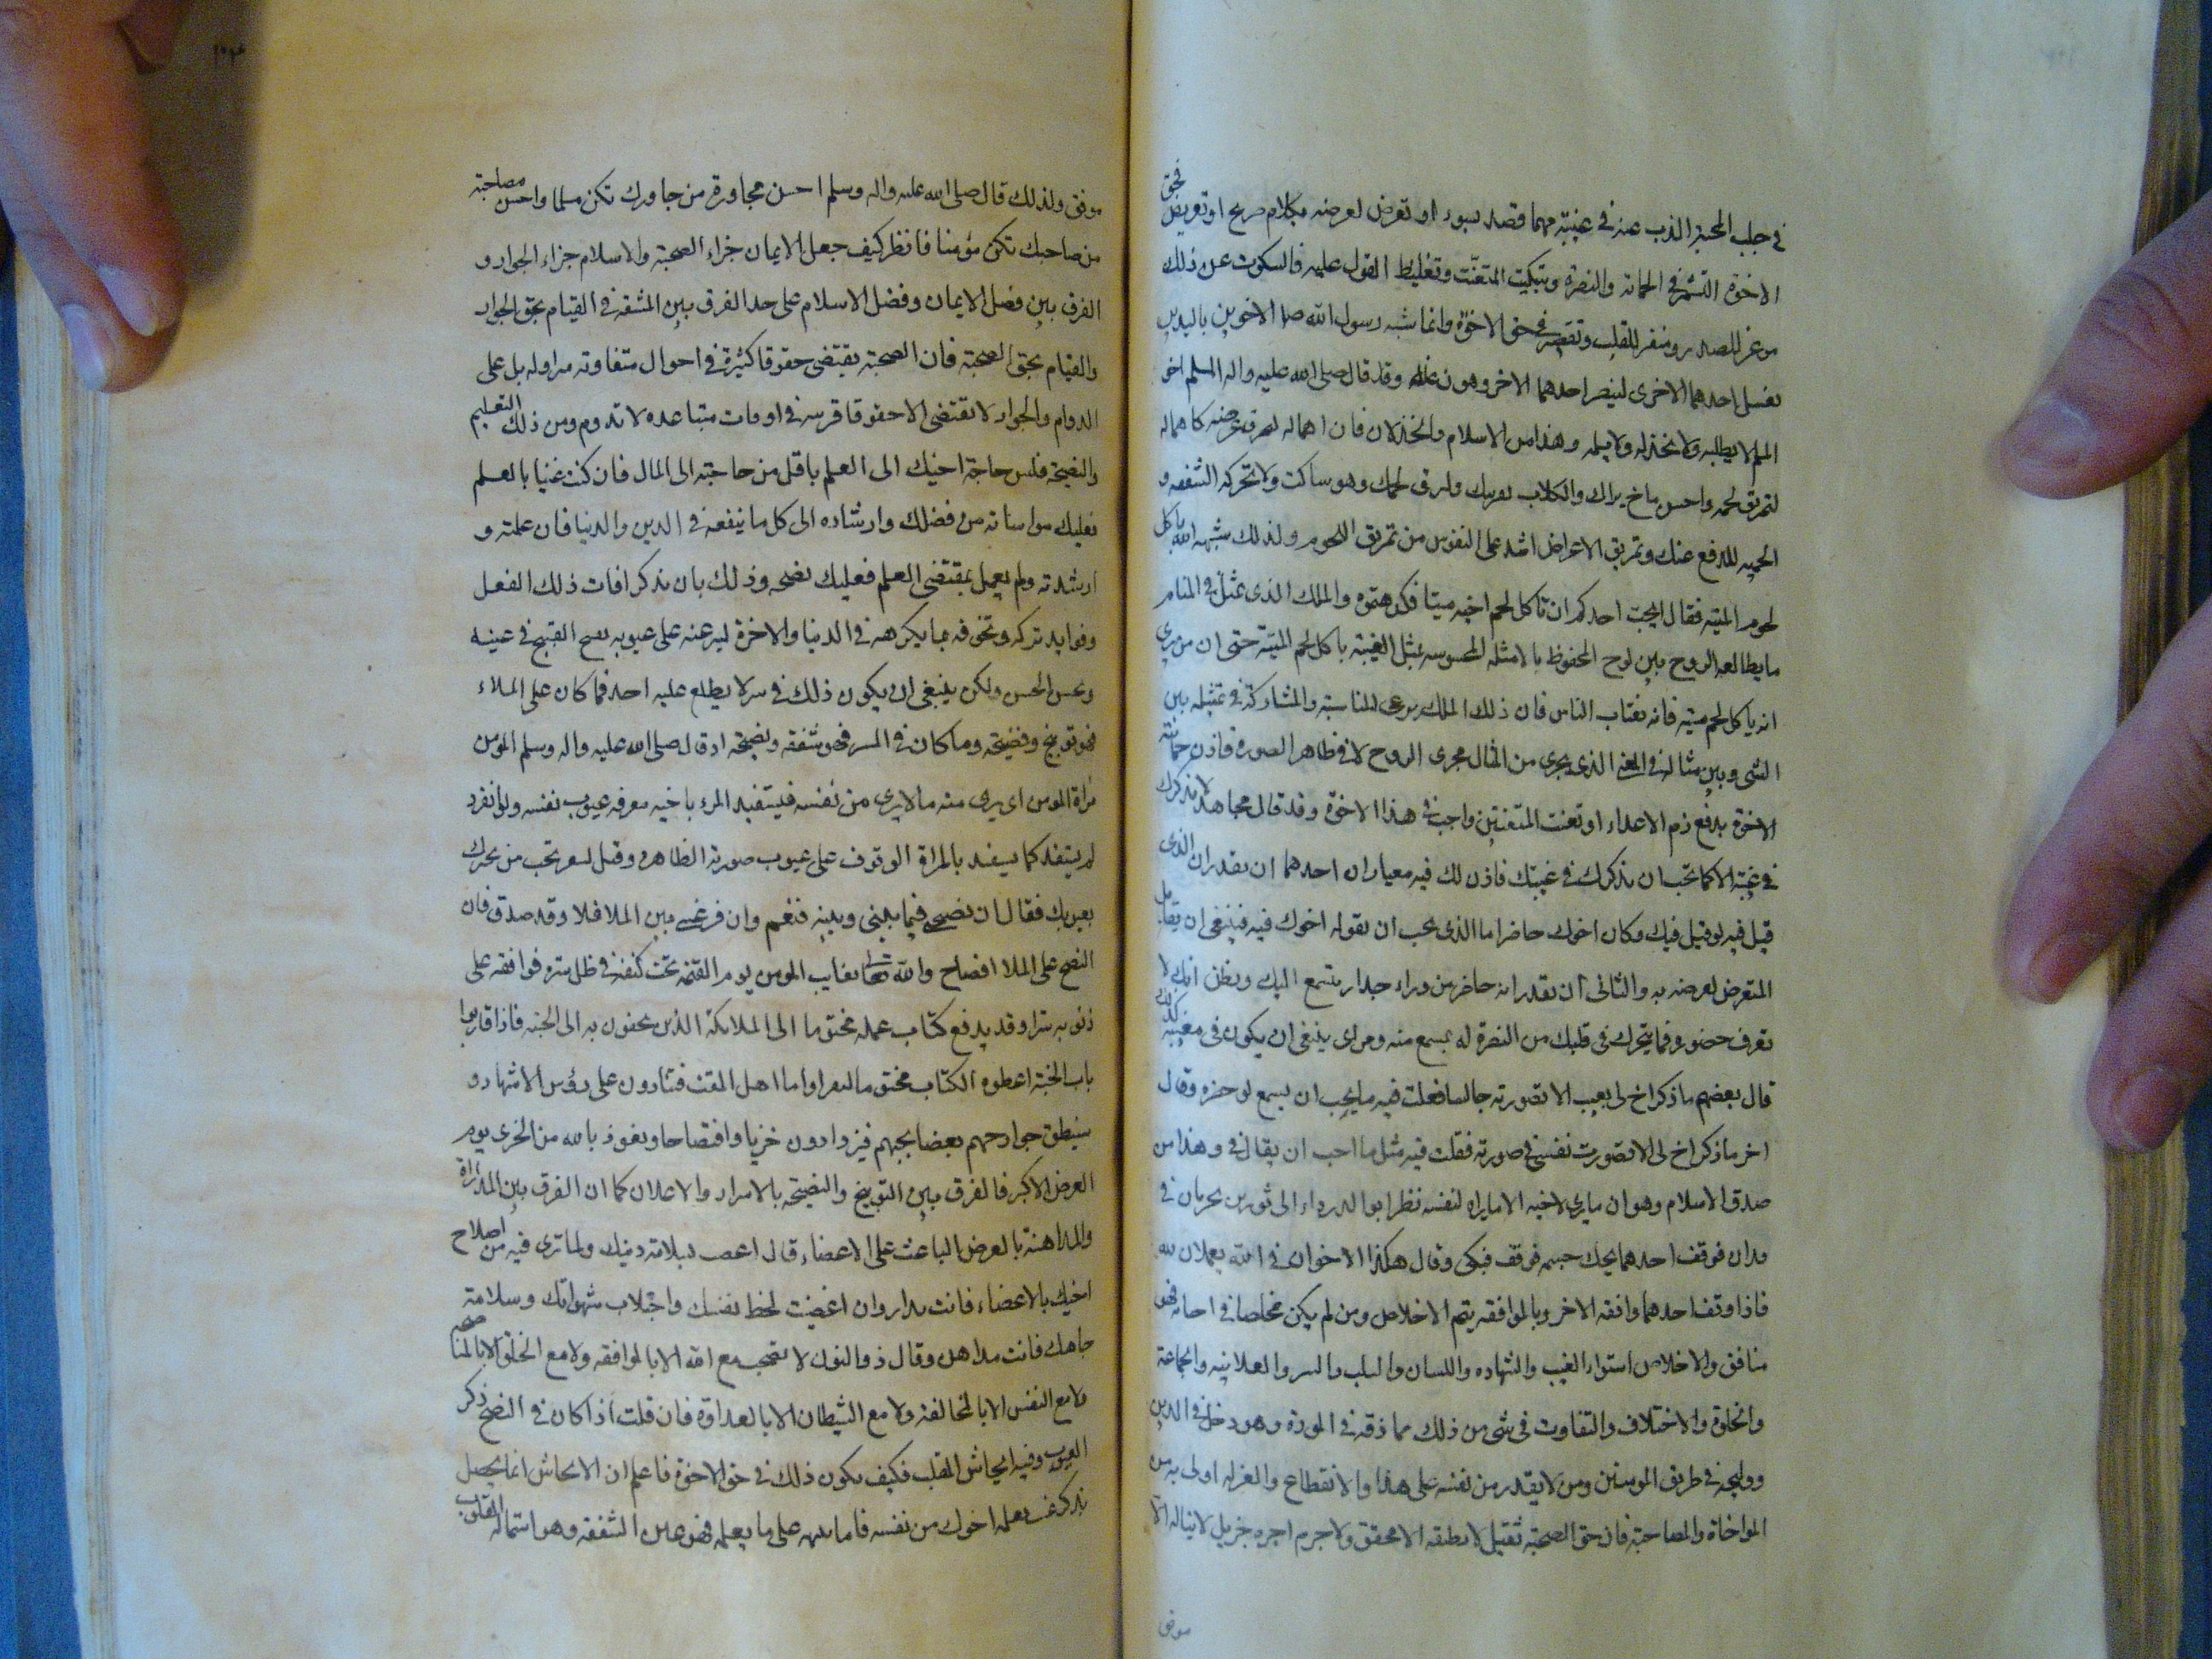 في جلب المحبة الذب عنه في غيبته مهما قصد بسوء او تعرض لعرضه بكلام صريح او تعريض فحق
الاخوة التشمر في الحماية والنصرة وتبكيت المتعنت وتغليظ القول عليه فالسكوت عن ذلك
موغر للصدر ومنفر للقلب وتقصير في حق الاخوة وانما شبه رسول الله صلم الاخوين باليدين
تغسل احدهما الاخرى لينصر احدهما الاخر وقد قال صلى الله عليه واله المسلم اخو
المسلم لا يظلمه ولا يخذله ولا يسلمه وهذا من الاسلام والخذلان فان اهماله لتمزيق عرضه كاهماله
لتمزيق لحمه واخسس باخ يراك والكلاب تفرسك وتمزق لحمك وهو ساكت ولا تحركه الشفقه و
الحميه للدفع عنك وتمزيق الاعراض اشد على النفوس من تمزيق اللحوم ولذلك شبهه الله باكل
لحوم الميته فقال ايحب احدكم ان ياكل لحم اخيه ميتا فكرهتموه والملك الذى يمثل في المنام
ما يطالعه الروح من لوح المحفوظ بالامثله المحسوسه يمثل الغيبة باكل لحم الميتة حتى ان من يرى
انه ياكل لحم ميته فانه يغتاب الناس فان ذلك الملك يرعى المناسبة والمشاركة في تمثيله بين
الشى وبين مثاله في المعنى الذى يجرى من المثال مجرى الروح لا في ظاهر الصورة فاذن حماية
الاخوة بدفع ذم الاعداء او تعنت المتعنتين واجب في هذا الاخوة وقد قال مجاهد لا تذكر اخاك
في غيبته الا كما تحب ان يذكرك في غيبتك فاذن لك فيه معياران احدهما ان تقدر ان الذى
قيل فيه لو قيل فيك وكان اخوك حاضرا ما الذى تحب ان يقوله اخوك فيه فينبغى ان تعامل
المتعرض لعرضه به والثانى ان تقدر انه حاضر من وراء جدار يتسمع اليك ويظن انك لا
تعرف حضوره فما يتحرك في قلبك من النصرة له بمسمع منه ومراى ينبغى ان يكون في مغيبه كذلك
قال بعضهم ما ذكر اخ لى بعيب الا تصورته جالسا فقلت فيه ما يحب ان يسمع لو حضره وقال
اخر ما ذكر اخ لى الا تصورت نفسي في صورته فقلت فيه مثل ما احب ان يقال في وهذا من
صدق الاسلام وهو ان ما يرى لاخيه الا ما يراه لنفسه نظر ابو الدرداء الى ثورين يحرثان في
فدان فوقف احدهما يحك جسمه فوقف فبكى وقال هكذا الاخوان في الله يعملان لله
فاذا وقف احدهما وافقه الاخر وبالموافقه يتم الاخلاص ومن لم يكن مخلصا في اخائه فهو
منافق والاخلاص استواء الغيب والشهاده واللسان والقلب والسر والعلانيه والجماعة
والخلوة والاختلاف والتفاوت في شى من ذلك مماذقه في المودة وهو دخل في الدين
ووليجه في طريق المومنين ومن لا يقدر من نفسه على هذا والانقطاع والعزله اولى به من
المواخاة والمصاحبة فان حق الصحبة ثقيل لا يطيقه الا محقق ولا جرم اجره جزيل لا يناله الا
موفق
موفق ولذلك قال صلى الله عليه واله وسلم احسن مجاورة من جاورك تكن مسلما واحسن مصاحبة
من صاحبك تكن مؤمنا فانظر كيف جعل الايمان جزاء الصحبة والاسلام جزاء الجوار و
الفرق بين فضل الايمان وفضل الاسلام على حد الفرق بين المشقه في القيام بحق الجوار
والقيام بحق الصحبة فان الصحبة يقتضى حقوقا كثيرة في احوال متفاوته متراوله بل على
الدوام والجوار لا يقتضى الا حقوقا قريبه في اوقات متباعده لا تدوم ومن ذلك التعليم
والنصيحة فليس حاجة اخيك الى العلم باقل من حاجته الى المال فان كنت غنيا بالعلم
فعليك مواساته من فضلك وارشاده الى كل ما ينفعه في الدين والدنيا فان علمته و
ارشدته ولم يعمل بمقتضى العلم فعليك نصحه وذلك بان تذكر افات ذلك الفعل
وفوايد تركه وتخوفه بما يكرهه في الدنيا والاخرة لينزجر عنه على عيوبه تقبح القبيح في عينه
وتحسن الحسن ولكن ينبغى ان يكون ذلك في سر لا يطلع عليه احد فما كان على الملاء
فهو توبيخ وفضيحة وما كان في السر فهو شفقه ونصيحة اذ قال صلى الله عليه واله وسلم المومن
مراة المومن اى يرى منه ما لا يرى من نفسه فيستفيد المرء باخيه معرفه عيوب نفسه ولو انفرد
لم يستفد كما يستفيد بالمراة الوقوف على عيوب صورته الظاهره وقيل لمسعر تحب من يخبرك
بعيوبك فقال ان نصحني فيما بيني وبينه فنعم وان قرعني بين الملا فلا وقد صدق فان
النصح على الملا افضاح والله تعالى يعاتب المومن يوم القيمة تحت كنفه في ظل ستره فيوافقه على
ذنوبه سرا وقد يدفع كتاب عمله مختوما الى الملايكة الذين يحفون به الى الجنه فاذا قاربوا
باب الجنة اعطوه الكتاب مختوما ليقراه واما اهل المقت فينادون على رؤس الاشهاد و
سينطق جوارحهم بفضايحهم فيزدادون خزيا وافتضاحا ونعوذ بالله من الخزى يوم
العرض الاكبر فالفرق بين التوبيخ والنصيحة بالاسرار والاعلان كما ان الفرق بين المداراة
والمداهنة بالغرض الباعث على الاغضاء فان اغضيت لسلامة دينك ولما ترى فيه من اصلاح
اخيك بالاغضاء فانت مدار وان اغضيت لحظ نفسك واجتلاب شهواتك وسلامة
جاهك فانت مداهن وقال ذو النون لا تصحب مع الله الا بالموافقه ولا مع الخلق الا بالمناصحه
ولا مع النفس الا بالمخالفة ولا مع الشيطان الا بالعداوة فان قلت اذا كان في النصح ذكر
العيوب وفيه ايحاش القلب فكيف يكون ذلك في حق الاخوة فاعلم ان الايحاش انما يحصل
بذكر عيب يعلمه اخوك من نفسه فاما تنبيهه على ما لا يعلمه فهو عين الشفقه وهو استمالة القلوب